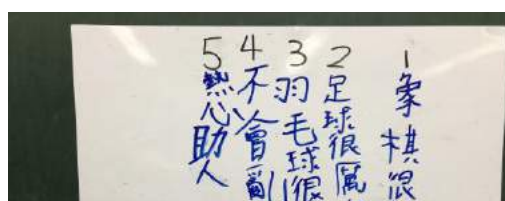 1 象棋很
2 足球很厲
3 羽毛球很
4 不會亂
5 熱心助人